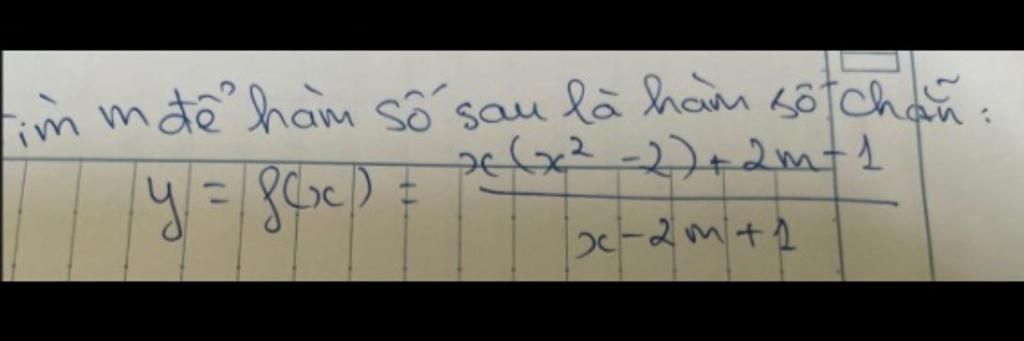 Tìm m để hàm số sau là hàm số chẵn:
y = f(x) = \frac{x(x² -2) + 2m - 1}{x - 2m + 1}